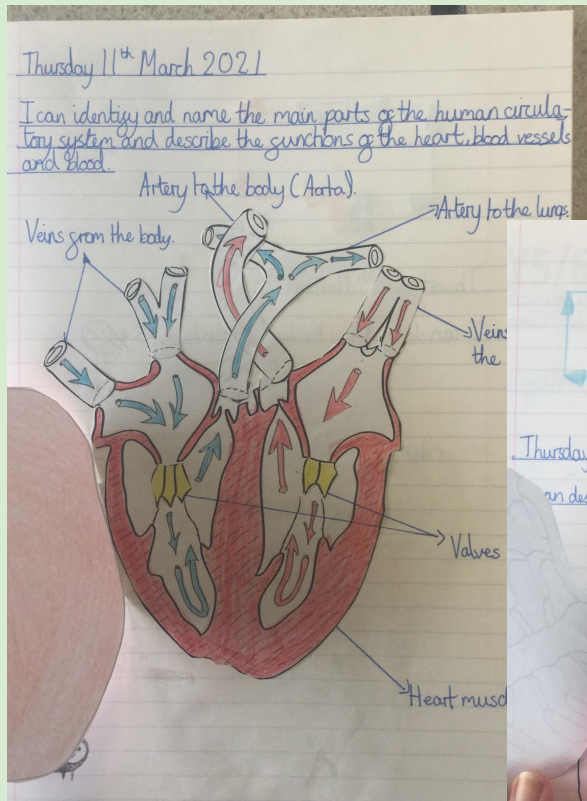 Thursday 11th March 2021
I can identify and name the main parts of the human circula-
tory system and describe the functions of the heart, blood vessels
and blood.
Artery to the body (Aorta).
Artery to the lungs
Veins from the body.
Veins
the
Valves
Heart musc
Thursday
an des